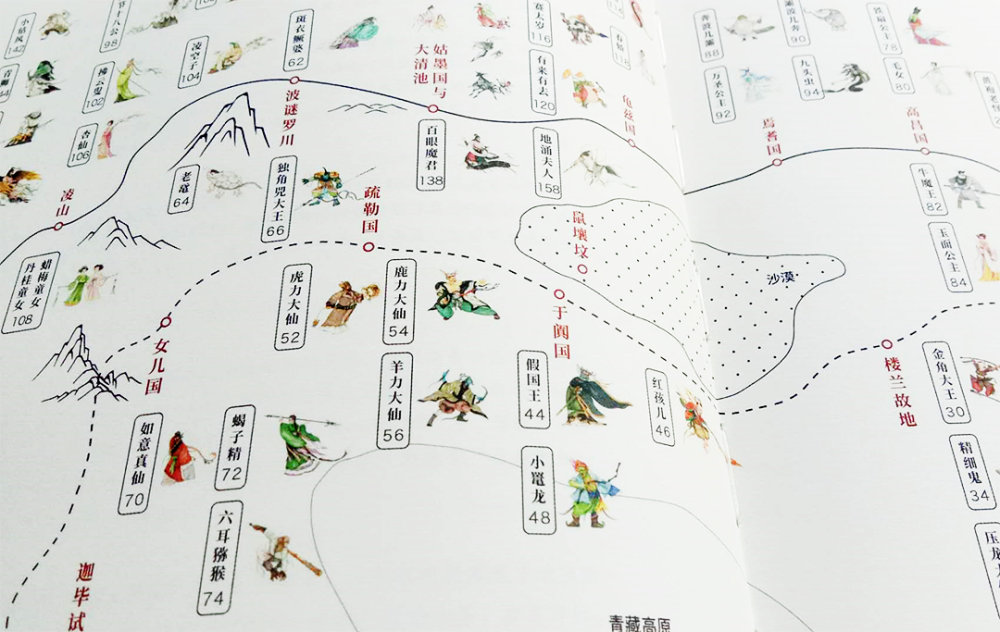 小鼠风
142
算十八公
98
凌空子
104
斑衣鳜婆
62
姑墨国与
大清池
赛太岁
116
有来有去
120
春娇
118
奔波儿灞
88
灞波儿奔
90
铁扇公主
78
万圣公主
92
九头虫
94
毛女
80
青狮
拂云叟
102
杏仙
106
波谜罗川
龟兹国
焉耆国
高昌国
百眼魔君
138
地涌夫人
158
牛魔王
82
玉面公主
84
凌山
老鼋
64
独角兕大王
66
疏勒国
鼠壤坟
沙漠
蜡梅童女
丹桂童女
108
虎力大仙
52
鹿力大仙
54
于阗国
女儿国
羊力大仙
56
假国王
44
红孩儿
46
楼兰故地
金角大王
30
精细鬼
34
如意真仙
70
蝎子精
72
小鼍龙
48
六耳猕猴
74
迦毕试
青藏高原